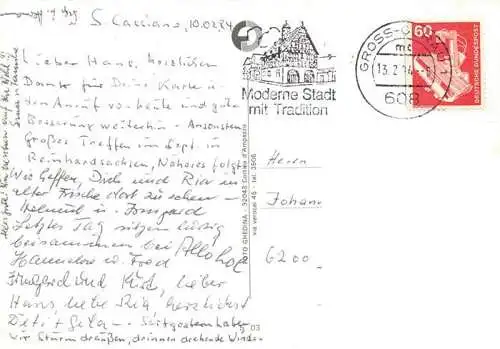 S. Cassiano, 10.02.84
Lieber Hans, herzlichen
Dank für Deine Karte u.
den Anruf von heute und gute
Besserung weiterhin. Ansonsten
Großes Treffen im Sept. in
Reinhardsachsen, Näheres folgt
Wir hoffen, Dich und Ria in
alter Frische dort zu sehen –
Helmut u. Irmgard
Letzter Tag sitzen lustig
beisammen bei Alkohol
Hannelore u. Fred
Irmgard und Kurt, lieber
Hans, herzlichst
Seit gestern haben
wir Sturm draußen, drinnen drehende Winde.
Moderne Stadt
mit Tradition
GROSS-
13.2.
608
60
DEUTSCHE BUNDESPOST
FOTO GHEDINA - 32043 Cortina d'Ampezzo
via
03
Herrn
Johann
6200